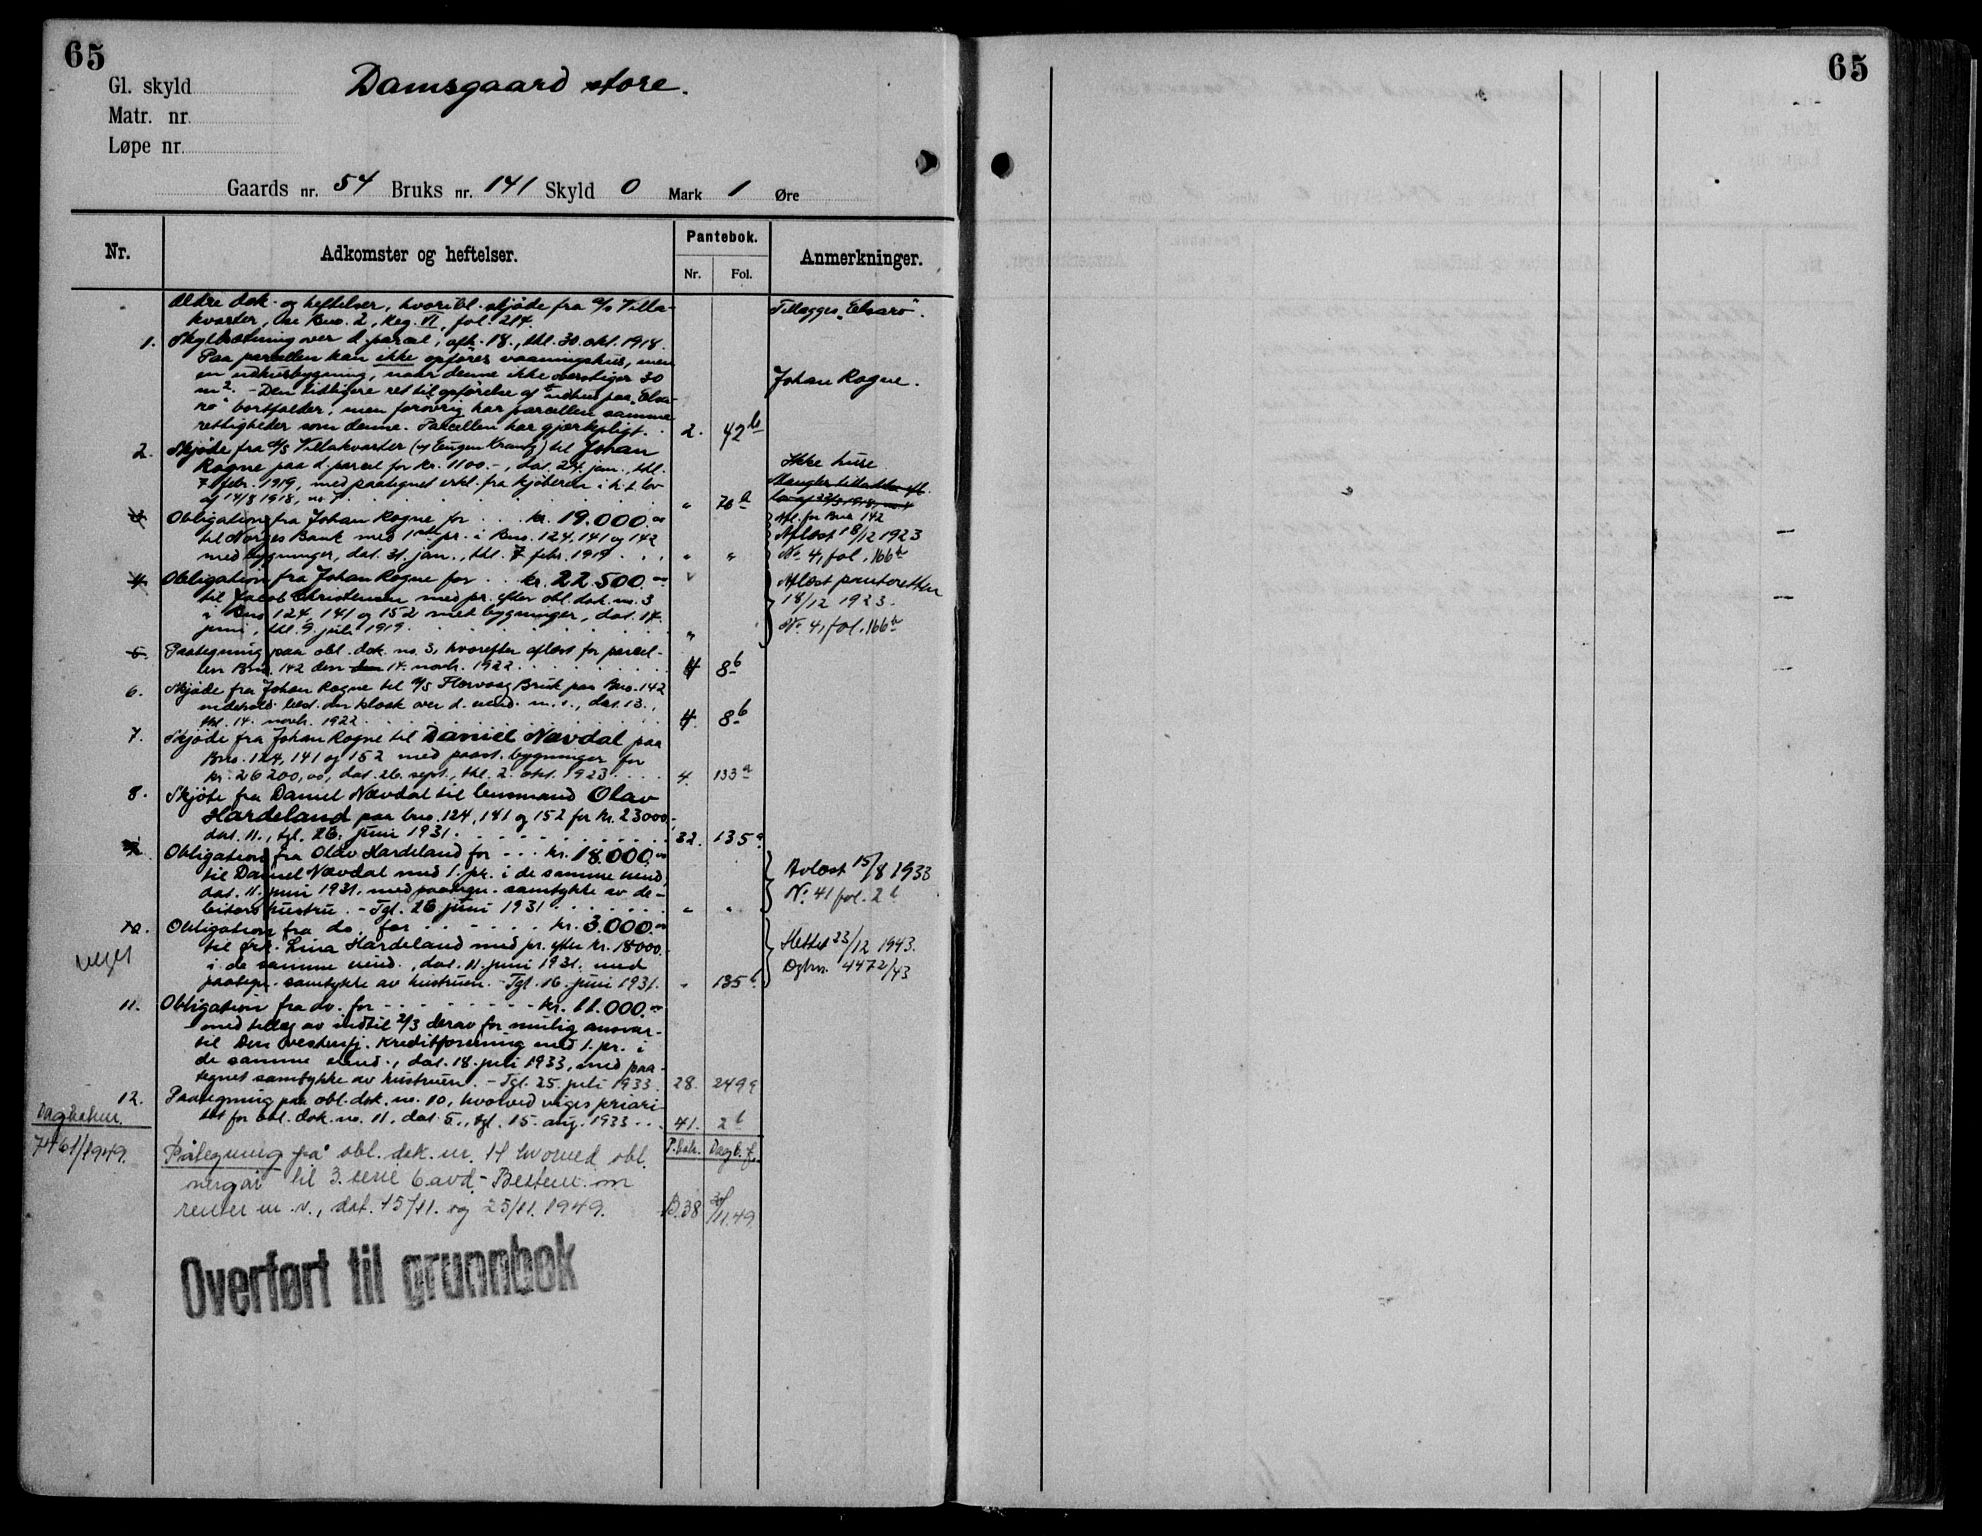 65
65
Gl. skyld
Damsgaard store.
Matr. nr.
Løpe nr.
Gaards nr. 54 Bruks nr. 141 Skyld 0 Mark 1 Øre
Nr.
Adkomster og heftelser.
Pantebok.
Nr. Fol.
Anmerkninger.
Ældre dok. og heftelser, hvoribl. skjøde fra a/s Villa-
kvarter, se Bno. 2, Reg. VI, fol. 214.
Tillægges „Elsaro".
1. Skyldsætning over d. parcel, afh. 18., thl. 30. okt. 1918.
Paa parcellen kan ikke opføres vaaningshus, men
en udhusbygning, naar denne ikke overstiger 30
m². - Den tidligere ret til opførelse af udhus paa „Elsa-
ro" bortfalder, men forøvrig har parcellen samme
rettigheter som denne. Parcellen har gjærkpligt. 2. 42 b
Johan Rogne.
2. Skjøde fra a/s Villakvarter (v/ Eugen Krantz) til Johan
Rogne paa d. parcel for kr. 1100.-, dat. 24. jan., thl.
7. febr. 1919, med paategnet erkl. fra kjøberen i h. t. lov
af 14/8 1918, nr. 7 " 70 a
Ikke huse.
3. Obligation fra Johan Rogne for kr. 19.000.00
til Norges Bank med 1ste pr. i Bno. 124, 141 og 142
med bygninger, dat. 31. jan., thl. 7. febr. 1919. " "
Afl. for Bno 142
Aflæst 18/12 1923
No. 4, fol. 166 b
4. Obligation fra Johan Rogne for kr. 22.500.00
til Jacob Christensen med pr. efter obl. dok. no. 3
i Bno 124, 141 og 152 med bygninger, dat. 14.
juni, thl. 9. juli 1919. "
Aflæst panteretten
18/12 1923.
No. 4, fol. 166 b
5. Paategning paa obl. dok. no. 3, hvorefter aflæst for parcel-
len Bno. 142 den 14. novb. 1922. 4 8 b
6. Skjøde fra Johan Rogne til a/s Florvaag Bruk paa Bno. 142
indehold. best. om kloak over d. eiend. m. v., dat. 13.,
thl. 14. novb. 1922. 4. 8 b
7. Skjøde fra Johan Rogne til Daniel Nævdal paa
Bno. 124, 141 og 152 med paast. bygninger for
kr. 26200,00, dat. 26. sept., thl. 2. okt. 1923. 4. 133 a
8. Skjøte fra Daniel Nævdal til lensmand Olav
Hardeland paa bno. 124, 141 og 152 for kr. 23000.-
dat. 11., tgl. 26. juni 1931. 32. 135 a
9. Obligation fra Olav Hardeland for kr. 18.000.00
til Daniel Nævdal med 1. pr. i de samme eiend.
dat. 11. juni 1931. med paategn. samtykke av de-
bitors hustru. - Tgl. 26 juni 1931 " "
Avlæst 15/8 1933
No. 41 fol. 2 b
10. Obligation fra do. for kr. 3.000.00
til frk. Lina Hardeland med pr. efter kr. 18000.-
i de samme eiend., dat. 11. juni 1931. med
paategn. samtykke av hustruen. - Tgl. 16. juni 1931. " 135 b
viget
Slettet 23/12 1943.
Dgbnr. 4472/43
11. Obligation fra do. for kr. 11.000.00
med tillæg av indtil 2/3 derav for mulig ansvar-
til Den vestenfj. Kreditforening med 1. pr. i
de samme eiend., dat. 18. juli 1933, med paa-
tegnet samtykke av hustruen. - Tgl. 25. juli 1933. 28. 249 a
12. Paategning paa obl. dok. no. 10, hvorved viges priori-
tet for obl. dok. no. 11, dat. 5., tgl. 15. aug. 1933 41. 2 b
P.bok. Dagb. f.
7461/1949.
Påtegning på obl. dok. nr. 11 hvorved obl.
overgår til 3. serie 6. avd. - Bestem. om
renter m. v., dat. 15/11. og 25/11. 1949. B.38 30/11.49.
Overført til grunnbok